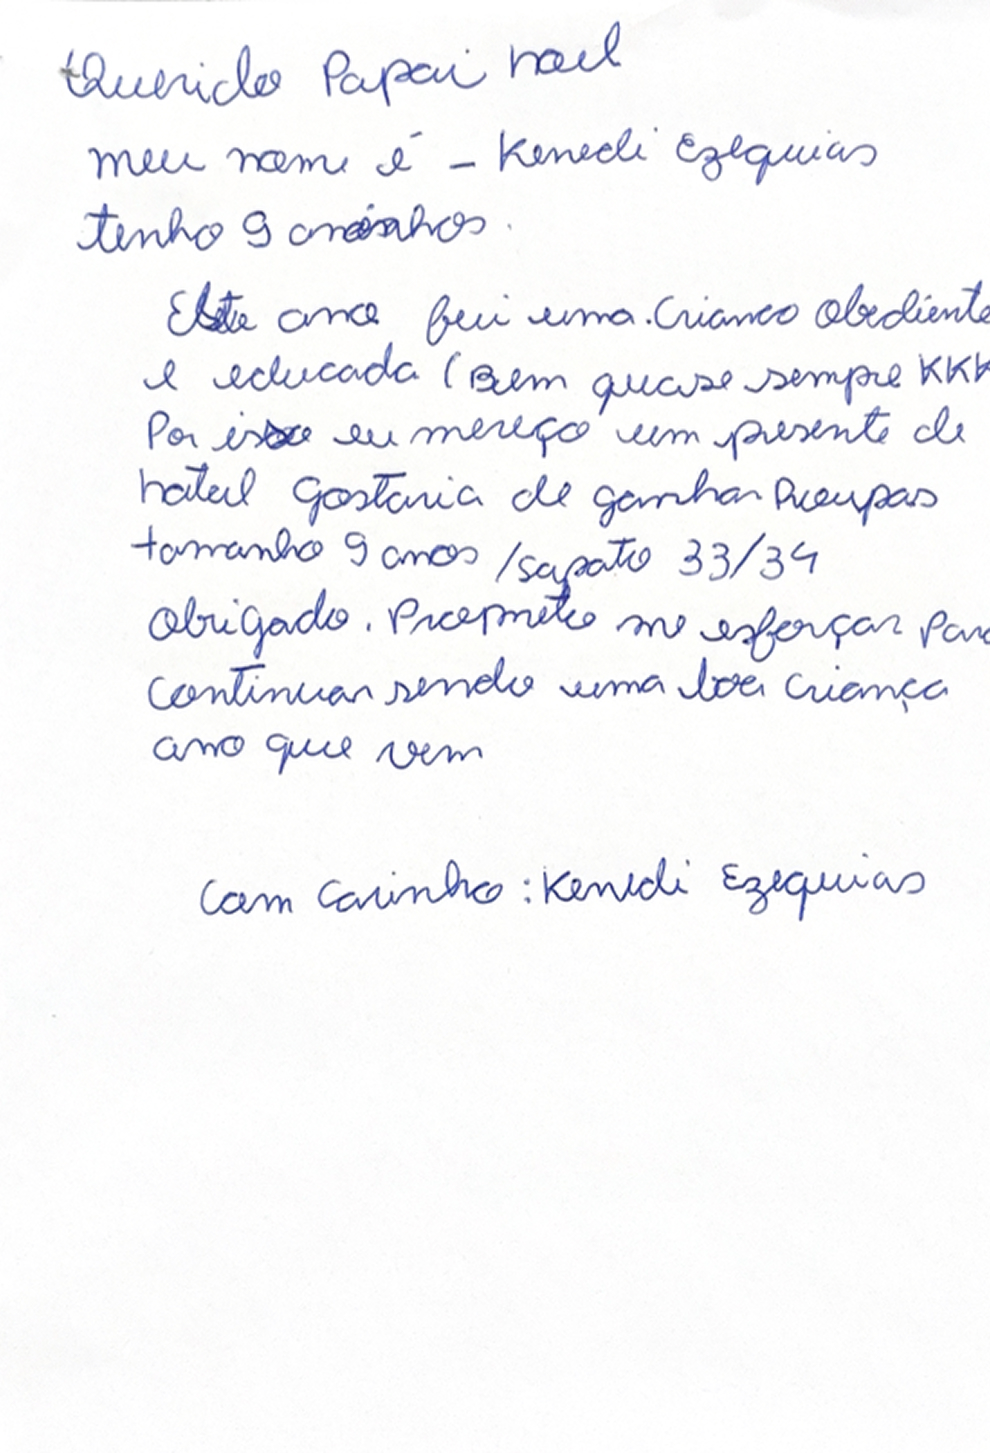 Querido Papai noel
meu nome é - Kenedi Ezequias
tenho 9 aninhos.
Este ano fui uma. Crianco obediente
e educada (Bem quase sempre KKK
Por isso eu mereço um presente de
natal Gostaria de ganhar Roupas
tamanho 9 anos / sapato 33/34
obrigado. Prometo me esforçar Para
continuar sendo uma boa criança
ano que vem
Com Carinho : Kenedi Ezequias